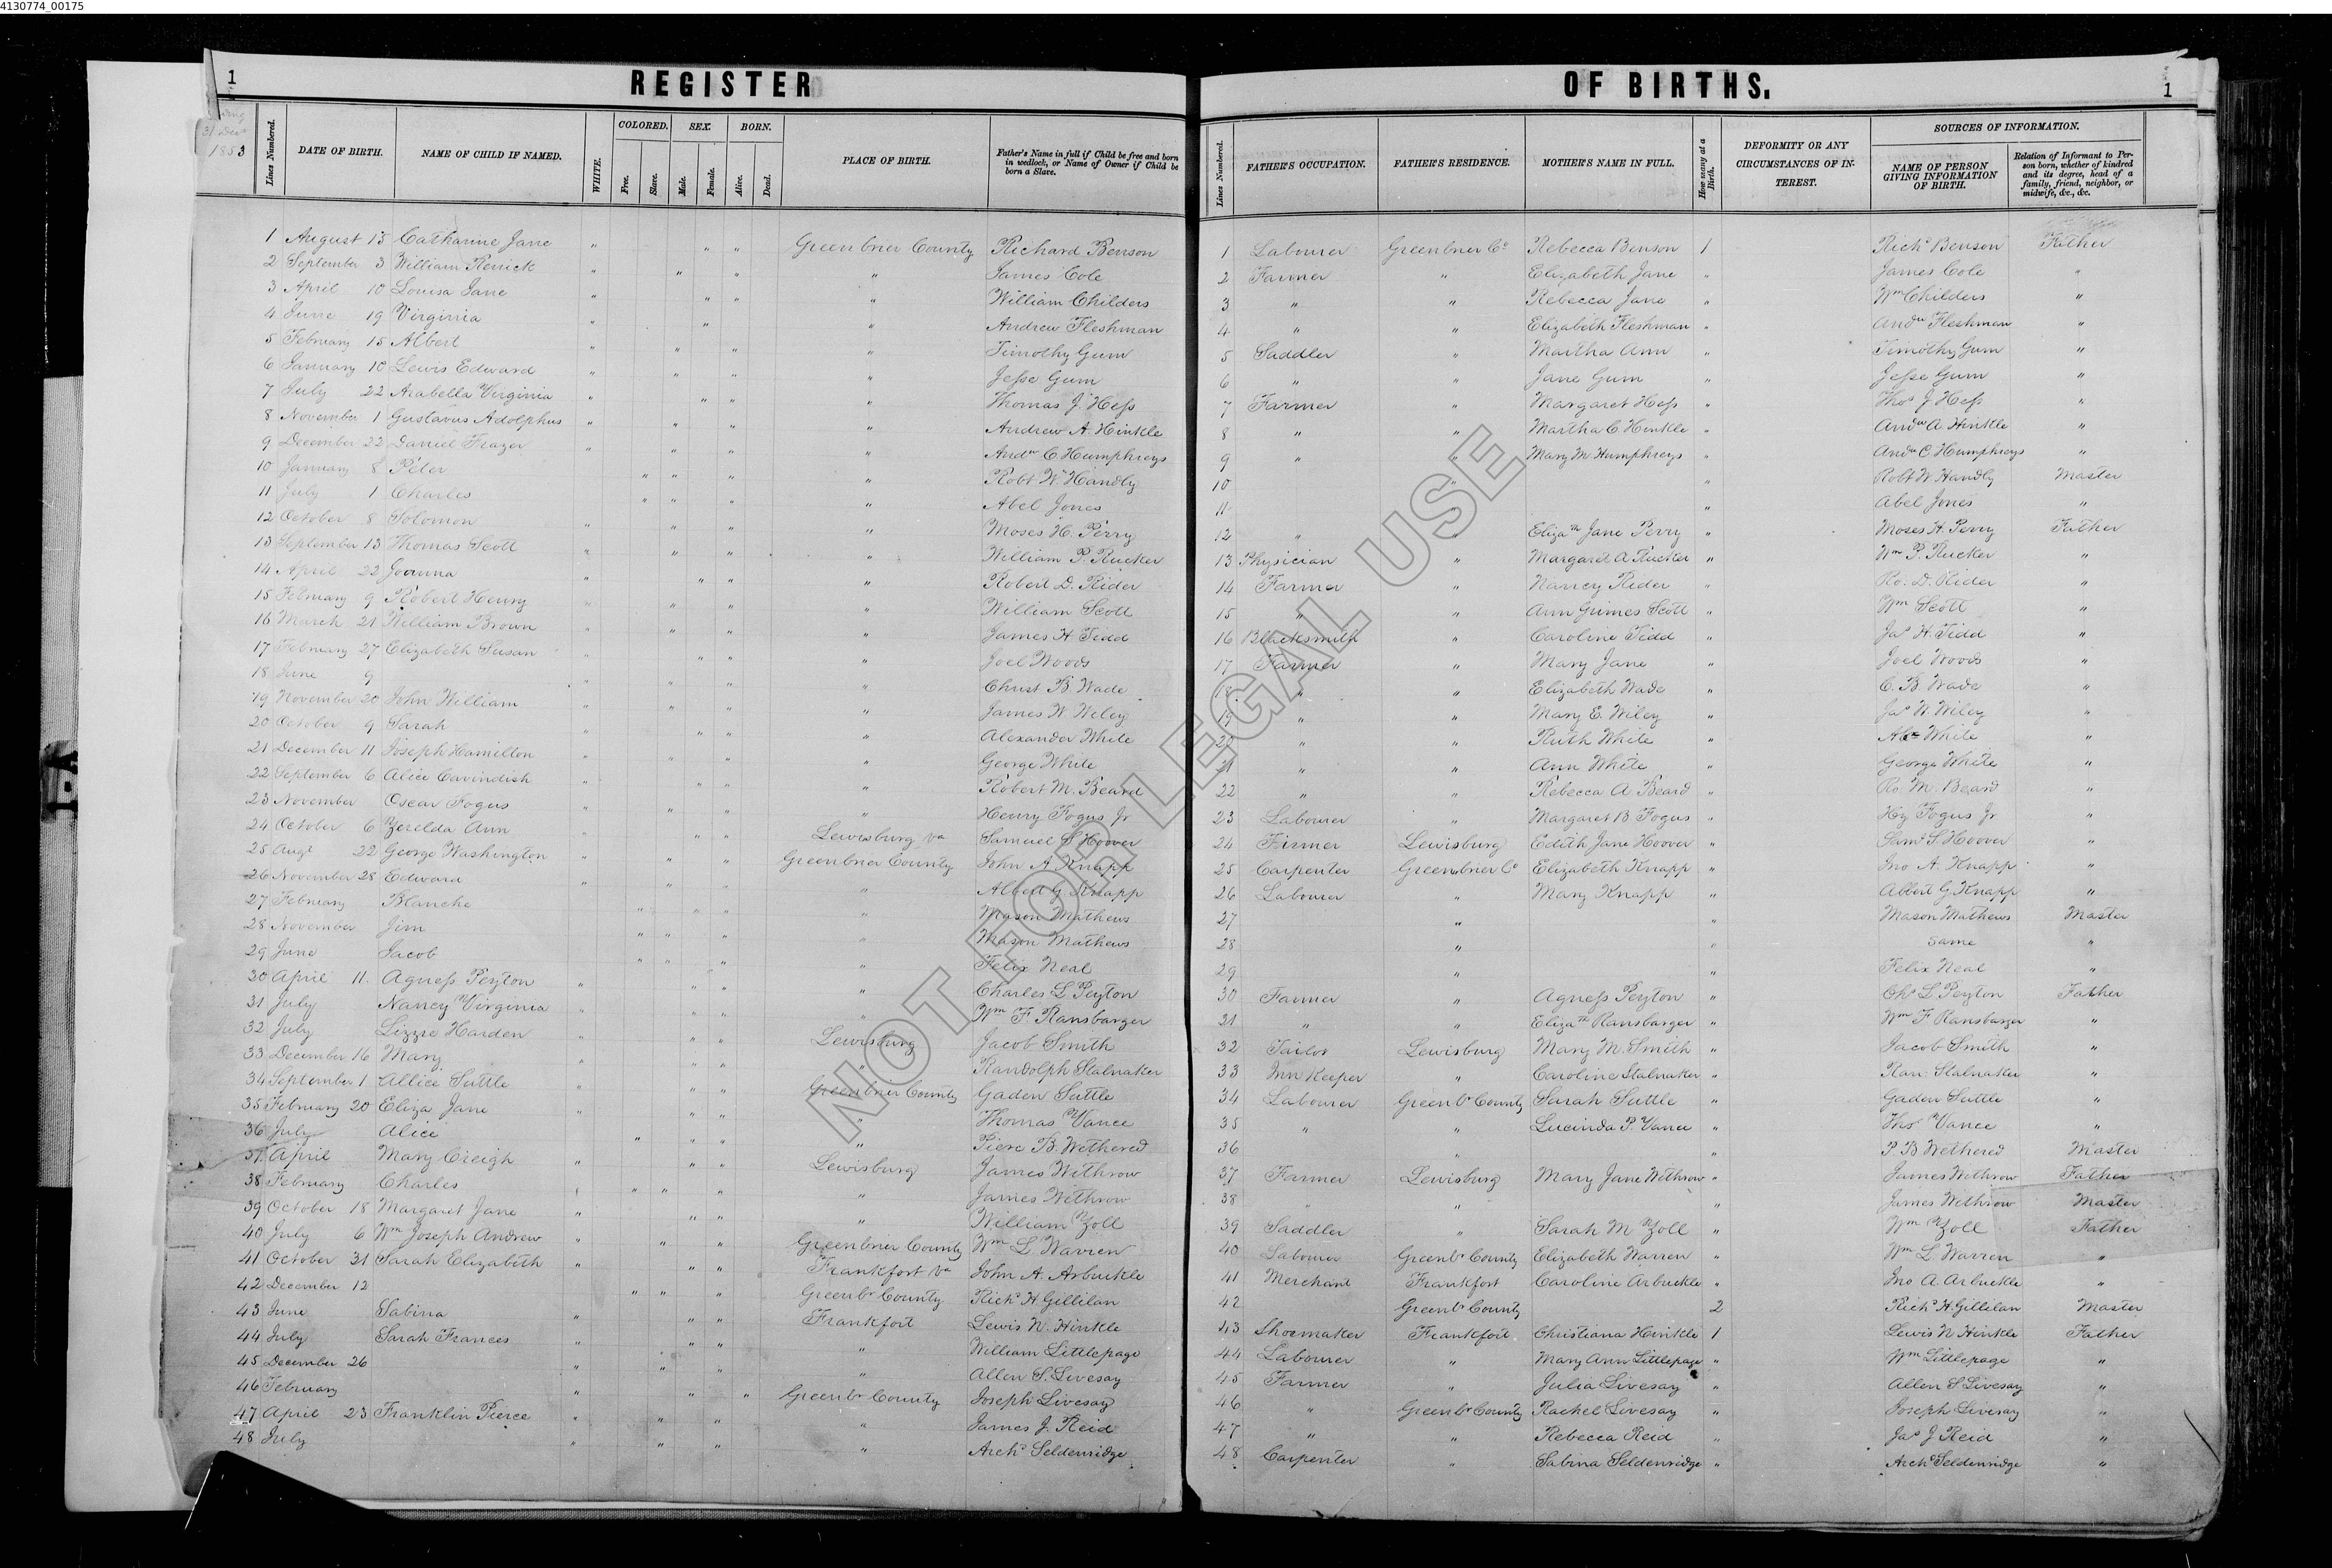 4130774_00175
1 REGISTER OF BIRTHS. 1
31 Dec 1853
Lines Numbered. DATE OF BIRTH. NAME OF CHILD IF NAMED. WHITE. COLORED. Free. Slave. SEX. Male. Female. BORN. Alive. Dead. PLACE OF BIRTH. Father's Name in full if Child be free and born in wedlock, or Name of Owner if Child be born a Slave.
Lines Numbered. FATHER'S OCCUPATION. FATHER'S RESIDENCE. MOTHER'S NAME IN FULL. How many at a Birth. DEFORMITY OR ANY CIRCUMSTANCES OF INTEREST. SOURCES OF INFORMATION. NAME OF PERSON GIVING INFORMATION OF BIRTH. Relation of Informant to Person born, whether of kindred and its degree, head of a family, friend, neighbor, or midwife, &c., &c.
1 August 15 Catharine Jane " " " Greenbrier County Richard Benson
2 September 3 William Renick " " " " James Cole
3 April 10 Louisa Jane " " " " William Childers
4 June 19 Virginia " " " Andrew Fleshman
5 February 15 Albert " " " " Timothy Gum
6 January 10 Lewis Edward " " " " Jesse Gum
7 July 22 Arabella Virginia " " " " Thomas J. Hess
8 November 1 Gustavus Adolphus " " " " Andrew A. Hinkle
9 December 22 Daniel Frazer " " " " Andw C. Humphreys
10 January 8 Peter " " " " Robt W. Handly
11 July 1 Charles " " " " Abel Jones
12 October 8 Solomon " " " " Moses H. Perry
13 September 13 Thomas Scott " " " " William P. Rucker
14 April 22 Joanna " " " " Robert D. Rider
15 February 9 Robert Henry " " " " William Scott
16 March 21 William Brown " " " " James H Tidd
17 February 27 Elizabeth Susan " " " " Joel Woods
18 June 9 " " " " Christ B. Wade
19 November 20 John William " " " " James W. Wiley
20 October 9 Sarah " " " " Alexander White
21 December 11 Joseph Hamilton " " " " George White
22 September 6 Alice Cavindish " " " " Robert M. Beard
23 November Oscar Fogus " " " " Henry Fogus Jr
24 October 6 Zerelda Ann " " " Lewisburg Va Samuel S Hoover
25 Augt 22 George Washington " " " Greenbrier County John A Knapp
26 November 28 Edward " " " " Albert G. Knapp
27 February Blanche " " " " Mason Mathews
28 November Jim " " " " Mason Mathews
29 June Jacob " " " " Felix Neal
30 April 11. Agness Peyton " " " " Charles L Peyton
31 July Nancy Virginia " " " " Wm F. Ransbarger
32 July Lizzie Harden " " " Lewisburg Jacob Smith
33 December 16 Mary " " " " Randolph Stalnaker
34 September 1 Allice Suttle " " " Greenbrier County Gaden Suttle
35 February 20 Eliza Jane " " " " Thomas Vance
36 July Alice " " " " Pierc B. Wethered
37 April Mary Creigh " " " Lewisburg James Withrow
38 February Charles " " " " James Withrow
39 October 18 Margaret Jane " " " " William Zoll
40 July 6 Wm Joseph Andrew " " " Greenbrier County Wm L Warren
41 October 31 Sarah Elizabeth " " " Frankfort Va John A. Arbuckle
42 December 12 " " " Greenbr County Richd H Gillilan
43 June Sabina " " " Frankfort Lewis N. Hinkle
44 July Sarah Frances " " " " William Littlepage
45 December 26 " " " " Allen S. Livesay
46 February " " " Greenbr County Joseph Livesay
47 April 23 Franklin Pierce " " " " James J. Reid
48 July " " " " Archd Seldenridge
1 Labourer Greenbrier Co Rebecca Benson 1 Richd Benson Father
2 Farmer " Elizabeth Jane " James Cole "
3 " " Rebecca Jane " Wm Childers "
4 " " Elizabeth Fleshman " Andw Fleshman "
5 Saddler " Martha Ann " Timothy Gum "
6 " " Jane Gum " Jesse Gum "
7 Farmer " Margaret Hess " Thos J Hess "
8 " " Martha C. Hinkle " Andw A Hinkle "
9 " " Mary M Humphreys " Andw C. Humphreys "
10 " " Robt W. Handly Master
11 " " Abel Jones "
12 " " Elizath Jane Perry " Moses H. Perry Father
13 Physician " Margaret A Rucker " Wm P. Rucker "
14 Farmer " Nancy Rider " Ro. D. Rider "
15 " " Ann Grimes Scott " Wm Scott "
16 Blacksmith " Caroline Tidd " Jas H. Tidd "
17 Farmer " Mary Jane " Joel Woods "
18 " " Elizabeth Wade " C. B. Wade "
19 " " Mary E. Wiley " Jas W. Wiley "
20 " " Ruth White " Alx White "
21 " " Ann White " George White "
22 " " Rebecca A Beard " Ro. M. Beard "
23 Labourer " Margaret B Fogus " Hy Fogus Jr "
24 Farmer Lewisburg Edith Jane Hoover " Saml S. Hoover "
25 Carpenter Greenbrier Co Elizabeth Knapp " Jno A. Knapp "
26 Labourer " Mary Knapp " Albert G. Knapp "
27 " " Mason Mathews Master
28 " " same "
29 " " Felix Neal "
30 Farmer " Agness Peyton " Chs L Peyton Father
31 " " Elizath Ransbarger " Wm F Ransbarger "
32 Tailor Lewisburg Mary M. Smith " Jacob Smith "
33 Inn Keeper " Caroline Stalnaker " Ran: Stalnaker "
34 Labourer Greenbr County Sarah Suttle " Gaden Suttle "
35 " " Lucinda P. Vance " Thos Vance "
36 " " P. B Wethered Master
37 Farmer Lewisburg Mary Jane Withrow " James Withrow Father
38 " " " James Withrow Master
39 Saddler " Sarah M Zoll " Wm Zoll Father
40 Labourer Greenbr County Elizabeth Warren " Wm L. Warren "
41 Merchant Frankfort Caroline Arbuckle " Jno A. Arbuckle "
42 Greenbr County 2 Richd H. Gillilan Master
43 Shoemaker Frankfort. Christiana Hinkle 1 Lewis N Hinkle Father
44 Labourer " Mary Ann Littlepage " Wm Littlepage "
45 Farmer " Julia Livesay " Allen S Livesay "
46 " Greenbr County Rachel Livesay " Joseph Livesay "
47 " " Rebecca Reid " Jas J Reid "
48 Carpenter " Sabina Seldenridge " Archd Seldenridge "
NOT FOR LEGAL USE